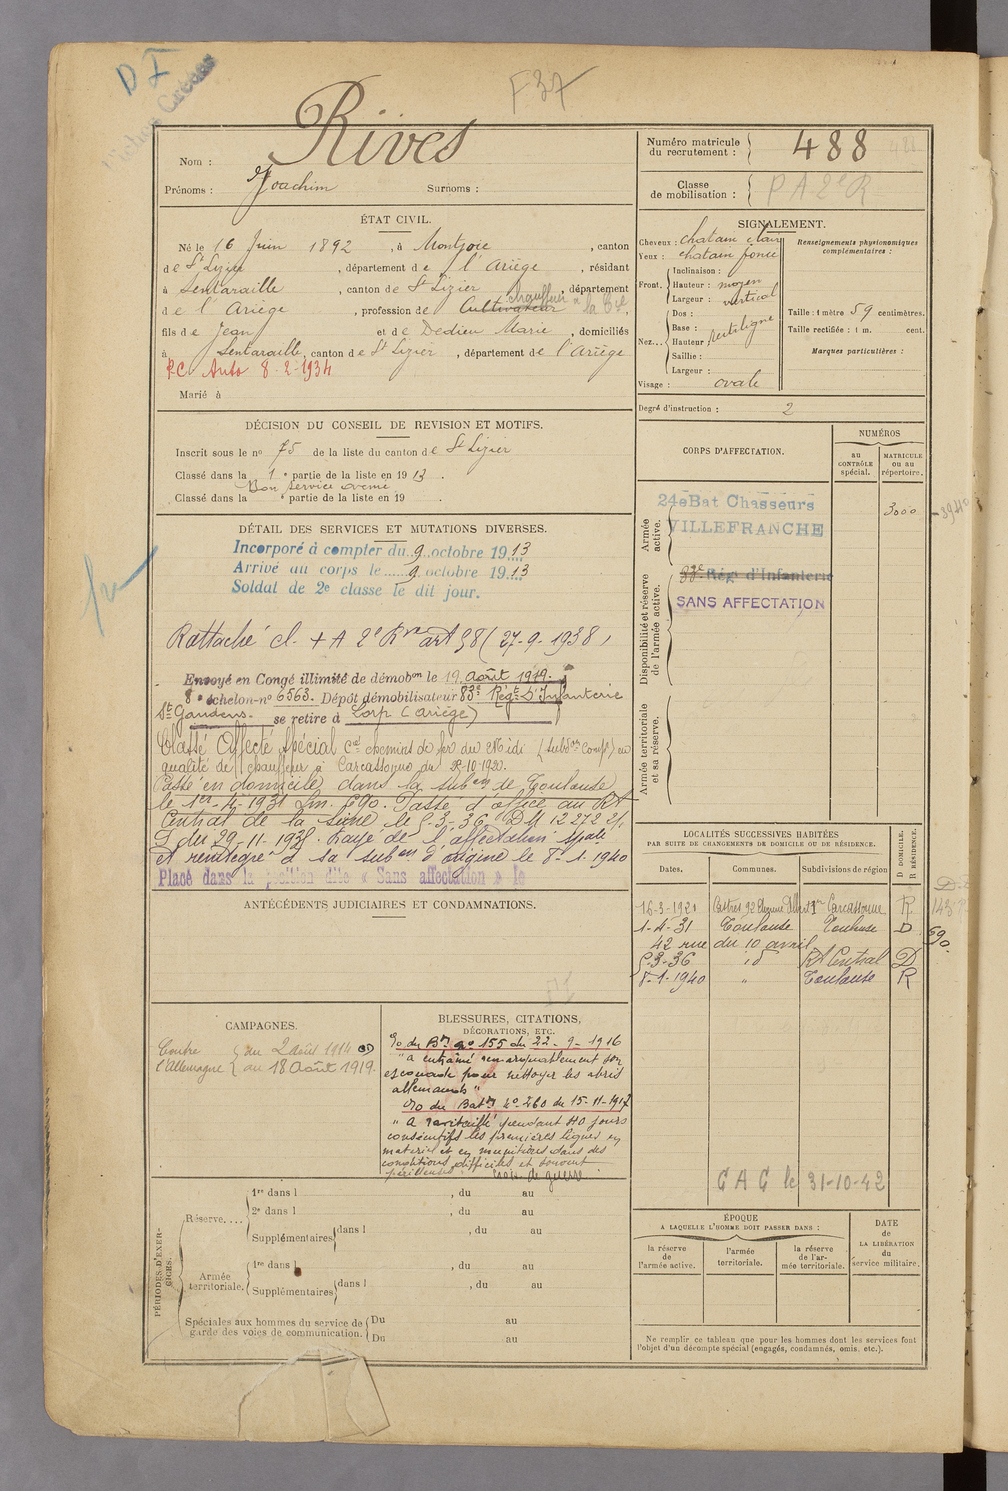 D I
F 37
Nom : Rives
Prénoms : Joachim Surnoms :
ÉTAT CIVIL.
Né le 16 Juin 1892, à Montjoie, canton
de St Lizier, département de l'Ariège, résidant
à Sentaraille, canton de St Lizier, département
de l'Ariège, profession de Cultivateur chauffeur
fils de Jean et de Dedieu Marie, domiciliés
à Sentaraille, canton de St Lizier, département de l'Ariège
RC Auto 8-2-1934
Marié à
DÉCISION DU CONSEIL DE REVISION ET MOTIFS.
Inscrit sous le no 75 de la liste du canton de St Lizier
Classé dans la 1e partie de la liste en 1913.
Bon service armé
Classé dans la e partie de la liste en 19 .
DÉTAIL DES SERVICES ET MUTATIONS DIVERSES.
Incorporé à compter du 9 octobre 1913
Arrivé au corps le 9 octobre 1913
Soldat de 2e classe le dit jour.
Rattaché cl. + A 2e Rve art 58 (27-9-1938)
Envoyé en Congé illimité de démobon le 19 Août 1919.
8e échelon-no 6563. Dépôt démobilisateur 83e Régt D'Infanterie
St Gaudens. se retire à Lorp (Ariège)
Classé Affecté Spécial Cie chemins de fer du Midi (Subon Compl) en
qualité de chauffeur à Carcassonne du 25-10-1920.
Passé en domicile dans la subon de Toulouse
le 1er-4-1931 Lm. 690. Passé d'office au RA
Central de la Seine le 5-3-36. DM 12272 2/1
du 29-11-1935. Rayé de l'affectation spale
et réintégré à sa subon d'origine le 8-1-1940
Placé dans la position dite « Sans affectation » le
ANTÉCÉDENTS JUDICIAIRES ET CONDAMNATIONS.
CAMPAGNES.
Contre l'Allemagne
du 2 Août 1914
au 18 Août 1919.
BLESSURES, CITATIONS,
DÉCORATIONS, ETC.
o/o du Bon no 155 du 22-9-1916
"a entraîné remarquablement son
escouade pour nettoyer les abris
allemands"
o/o du Baton No 260 du 15-11-1917
"A ravitaillé pendant 40 jours
consécutifs les premières lignes en
matériel et en munitions dans des
conditions difficiles et souvent
périlleuses. Croix de guerre.
PÉRIODES D'EXERCICES.
Réserve....
1re dans l , du au
2e dans l , du au
Supplémentaires dans l , du au
Armée territoriale.
1re dans l , du au
Supplémentaires dans l , du au
Spéciales aux hommes du service de garde des voies de communication.
Du au
Du au
Numéro matricule du recrutement : 488
Classe de mobilisation : P A 2e R
SIGNALEMENT.
Cheveux : chatain clair
Yeux : chatain foncé
Front. Inclinaison :
Hauteur : moyen
Largeur : vertical
Nez... Dos :
Base : rectiligne
Hauteur
Saillie :
Largeur :
Visage : ovale
Renseignements physionomiques complémentaires :
Taille : 1 mètre 59 centimètres.
Taille rectifiée : 1 m. cent.
Marques particulières :
Degré d'instruction : 2
CORPS D'AFFECTATION.
NUMÉROS
au CONTRÔLE spécial.
MATRICULE ou au répertoire.
Armée active.
24e Bat Chasseurs
VILLEFRANCHE
3000
Disponibilité et réserve de l'armée active.
83e Régt d'Infanterie
SANS AFFECTATION
Armée territoriale et sa réserve.
LOCALITÉS SUCCESSIVES HABITÉES
PAR SUITE DE CHANGEMENTS DE DOMICILE OU DE RÉSIDENCE.
Dates. Communes. Subdivisions de région D DOMICILE. R RÉSIDENCE.
16-3-1921 Castres Carcassonne R
1-4-31 Toulouse Toulouse D 690.
42 rue du 10 avril
5-3-36 id RA Central D
8-1-1940 " Toulouse R
CAG le 31-10-42
ÉPOQUE
A LAQUELLE L'HOMME DOIT PASSER DANS :
la réserve de l'armée active.
l'armée territoriale.
la réserve de l'armée territoriale.
DATE de LA LIBÉRATION du service militaire.
Ne remplir ce tableau que pour les hommes dont les services font
l'objet d'un décompte spécial (engagés, condamnés, omis, etc.).